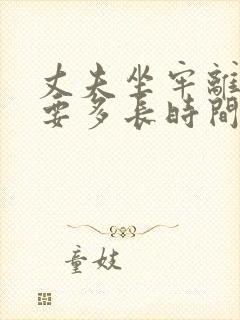 丈夫坐牢離
要多長時間
童妓